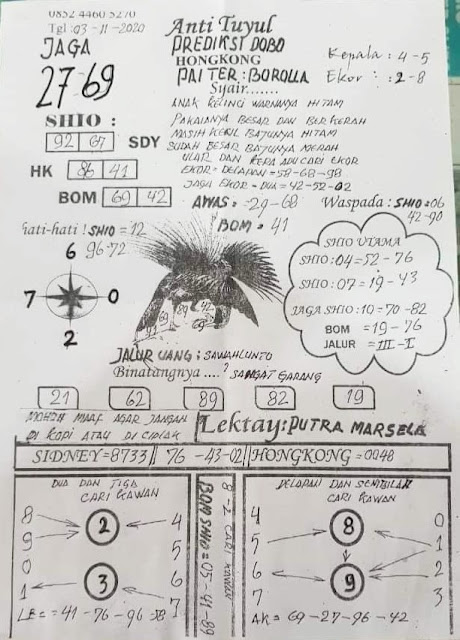 0852 4460 5270
Tgl : 03-11-2020
Anti Tuyul
JAGA
PREDIKSI DOBO
HONGKONG
Kepala : 4-5
27-69
PAITER : BOROLLA
Ekor : : 2-8
Syair.......
ANAK KELINCI WARNANYA HITAM
SHIO :
PAKAIANYA BESAR DAN BERKERAH
92 67 SDY
MASIH KECIL BAJUNYA HITAM
SUDAH BESAR BAJUNYA MERAH
ULAR DAN KEPA ADU CARI EKOR
HK 86 41
EKOR = DELAPAN = 58-68-98
JAGA EKOR = DUA = 42-52-02
BOM 69 42
AWAS = -29-68
Waspada : SHIO = 06
42-90
Hati-hati ! SHIO = 12
BOM = 41
96-72
SHIO UTAMA
6
SHIO : 04 = 52 - 76
7 0
SHIO : 07 = 19 - 43
2
JAGA SHIO : 10 = 70 - 82
BOM = 19 - 76
JALUR = III - I
JALUR UANG : SAWAHLUNTO
Binatangnya ....? SANGAT GARANG
21 62 89 82 19
MOHON MAAF AGAR JANGAN
DI KOPI ATAU DI CIPLAK
Lektay : PUTRA MARSELA
SIDNEY = 8733 || 76 - 43-02 || HONGKONG = 0048
DUA DAN TIGA
CARI KAWAN
8 - 2 CARI KAWAN
BOM SHIO = 05-41-89
DELAPAN DAN SEMBILAN
CARI KAWAN
8 2 4
9 5
0 3 6
1 7
LB = = 41 - 76 - 96 - 38
4 8 0
5 1
6 9 2
7 3
AK = 69 - 27 - 96 - 42